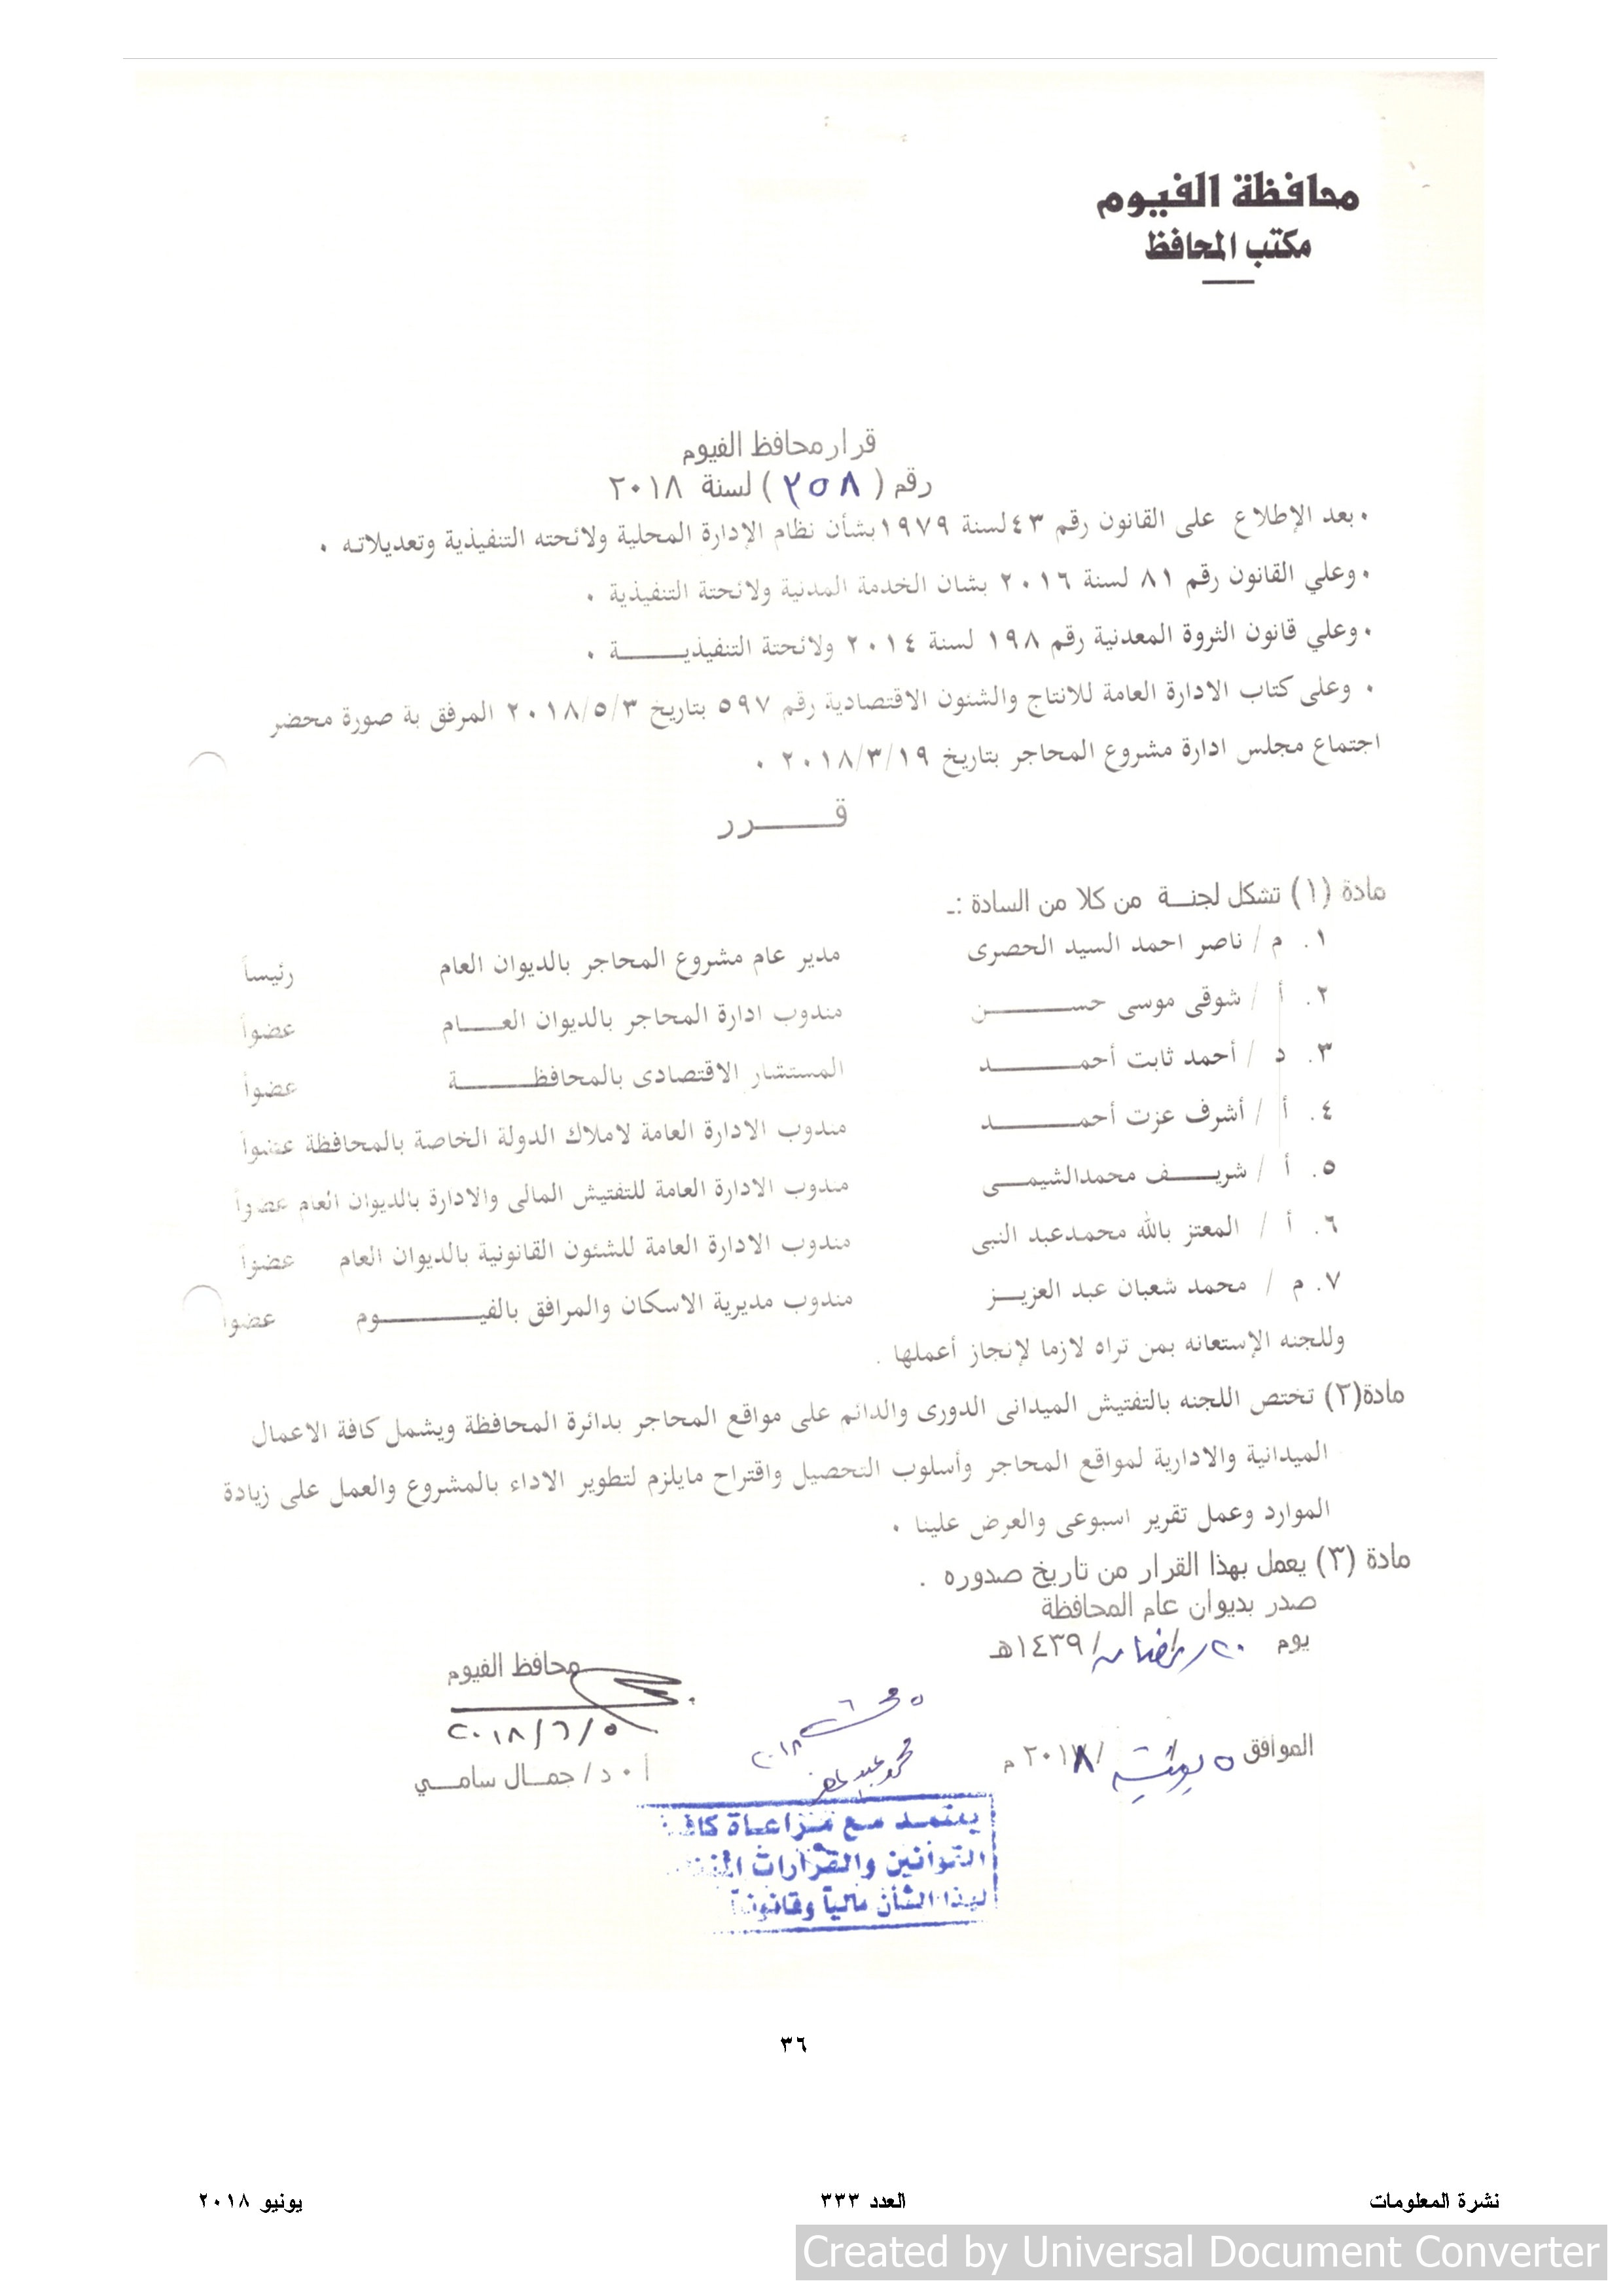 محافظة الفيوم
مكتب المحافظ
قرار محافظ الفيوم
رقم ( ٢٥٨ ) لسنة ٢٠١٨
• بعد الإطلاع على القانون رقم ٤٣ لسنة ١٩٧٩ بشأن نظام الإدارة المحلية ولائحته التنفيذية وتعديلاته •
• وعلي القانون رقم ٨١ لسنة ٢٠١٦ بشان الخدمة المدنية ولائحتة التنفيذية •
• وعلي قانون الثروة المعدنية رقم ١٩٨ لسنة ٢٠١٤ ولائحتة التنفيذيـــــة •
• وعلى كتاب الادارة العامة للانتاج والشئون الاقتصادية رقم ٥٩٧ بتاريخ ٢٠١٨/٥/٣ المرفق بة صورة محضر
اجتماع مجلس ادارة مشروع المحاجر بتاريخ ٢٠١٨/٣/١٩ •
قـــــرر
مادة (١) تشكل لجنــة من كلا من السادة :ـ
١. م / ناصر احمد السيد الحصرى مدير عام مشروع المحاجر بالديوان العام رئيساً
٢. أ / شوقى موسى حســـــــن مندوب ادارة المحاجر بالديوان العـــام عضواً
٣. د / أحمد ثابت أحمـــــــد المستشار الاقتصادى بالمحافظـــــــة عضواً
٤. أ / أشرف عزت أحمـــــــد مندوب الادارة العامة لاملاك الدولة الخاصة بالمحافظة عضواً
٥. أ / شريـــف محمدالشيمـــى مندوب الادارة العامة للتفتيش المالى والادارة بالديوان العام عضواً
٦. أ / المعتز بالله محمدعبد النبى مندوب الادارة العامة للشئون القانونية بالديوان العام عضواً
٧. م / محمد شعبان عبد العزيــز مندوب مديرية الاسكان والمرافق بالفيـــــــوم عضواً
وللجنه الإستعانه بمن تراه لازما لإنجاز أعملها .
مادة(٢) تختص اللجنه بالتفتيش الميدانى الدورى والدائم على مواقع المحاجر بدائرة المحافظة ويشمل كافة الاعمال
الميدانية والادارية لمواقع المحاجر وأسلوب التحصيل واقتراح مايلزم لتطوير الاداء بالمشروع والعمل على زيادة
الموارد وعمل تقرير اسبوعى والعرض علينا •
مادة (٣) يعمل بهذا القرار من تاريخ صدوره .
صدر بديوان عام المحافظة
يوم ٢٠ رمضان /١٤٣٩هـ
محافظ الفيوم
٢٠١٨/٦/٥
الموافق ٥ يونية /٢٠١٨ م
أ ٠ د/ جمــال سامــي
يعتمد مع مراعاة كافة
القوانين والقرارات
لهذا الشأن مالياً وقانونياً
٣٦
نشرة المعلومات العدد ٣٣٣ يونيو ٢٠١٨
Created by Universal Document Converter